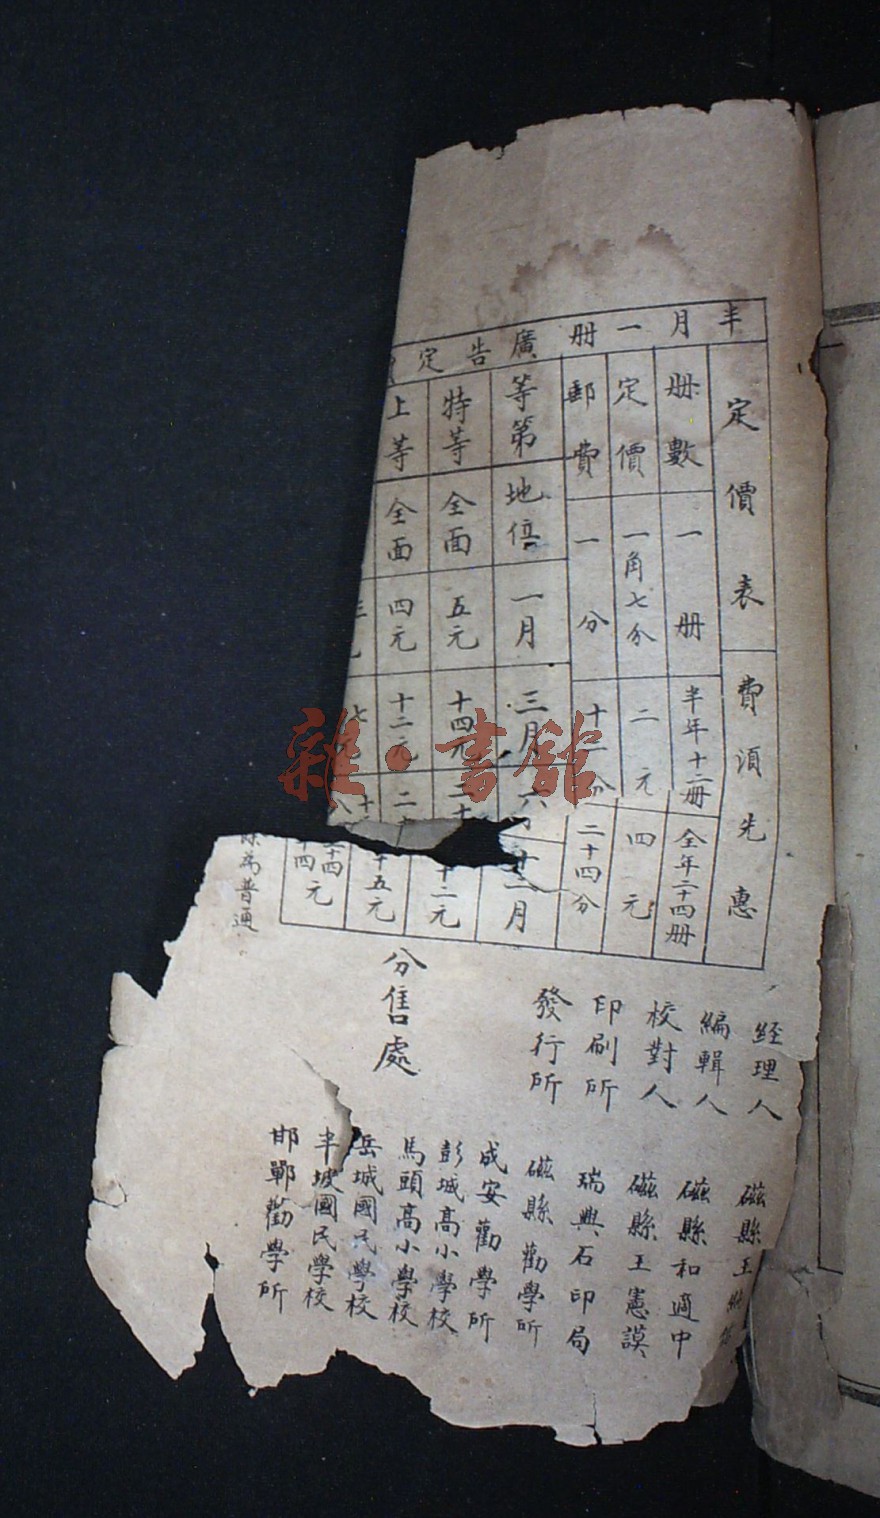 半月一册
定價表 費須先惠
册數 一册 半年十二册 全年二十四册
定價 一角七分 二元 四元
郵費 一分 十二分 二十四分
廣告定
等第 地位 一月 三月 六月 十二月
特等 全面 五元 十四元 二十 十二元
上等 全面 四元 十二元 二十 十五元
十四元
為普通
經理人 磁縣王
編輯人 磁縣和適中
校對人 磁縣王憲謨
印刷所 瑞興石印局
發行所 磁縣勸學所
分售處
成安勸學所
彭城高小學校
馬頭高小學校
岳城國民學校
半坡國民學校
邯鄲勸學所
雜·書館